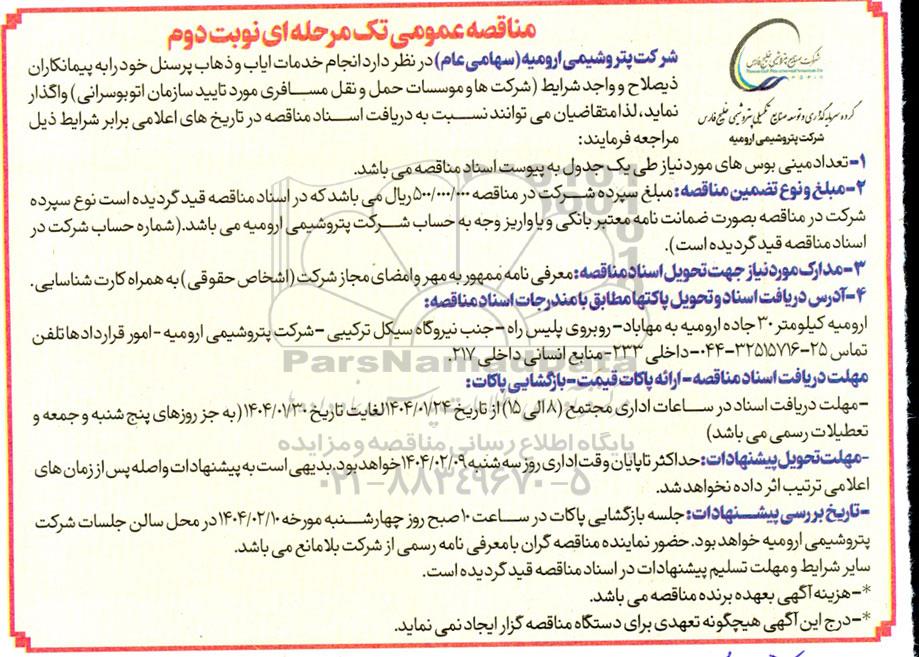 مناقصه عمومی تک مرحله ای نوبت دوم
شرکت صنایع پتروشیمی خلیج فارس
Persian Gulf Petrochemical Industries Co
گروه سرمایه گذاری و توسعه صنایع تکمیلی پتروشیمی خلیج فارس
شرکت پتروشیمی ارومیه
شرکت پتروشیمی ارومیه (سهامی عام) در نظر دارد انجام خدمات ایاب و ذهاب پرسنل خود را به پیمانکاران
ذیصلاح و واجد شرایط (شرکت ها و موسسات حمل و نقل مسافری مورد تایید سازمان اتوبوسرانی) واگذار
نماید، لذا متقاضیان می توانند نسبت به دریافت اسناد مناقصه در تاریخ های اعلامی برابر شرایط ذیل
مراجعه فرمایند:
۱- تعداد مینی بوس های مورد نیاز طی یک جدول به پیوست اسناد مناقصه می باشد.
۲- مبلغ و نوع تضمین مناقصه: مبلغ سپرده شرکت در مناقصه ۵۰۰/۰۰۰/۰۰۰ ریال می باشد که در اسناد مناقصه قید گردیده است نوع سپرده
شرکت در مناقصه بصورت ضمانت نامه معتبر بانکی و یا واریز وجه به حساب شرکت پتروشیمی ارومیه می باشد. (شماره حساب شرکت در
اسناد مناقصه قید گردیده است).
۳- مدارک مورد نیاز جهت تحویل اسناد مناقصه: معرفی نامه ممهور به مهر و امضای مجاز شرکت (اشخاص حقوقی) به همراه کارت شناسایی.
۴- آدرس دریافت اسناد و تحویل پاکتها مطابق با مندرجات اسناد مناقصه:
ارومیه کیلومتر ۳۰ جاده ارومیه به مهاباد - روبروی پلیس راه - جنب نیروگاه سیکل ترکیبی - شرکت پتروشیمی ارومیه - امور قراردادها تلفن
تماس ۲۵-۳۲۵۱۵۷۱۶-۰۴۴- داخلی ۲۳۳ - منابع انسانی داخلی ۲۱۷.
مهلت دریافت اسناد مناقصه - ارائه پاکات قیمت - بازگشایی پاکات:
- مهلت دریافت اسناد در ساعات اداری مجتمع (۸ الی ۱۵) از تاریخ ۱۴۰۴/۰۱/۲۴ لغایت تاریخ ۱۴۰۴/۰۱/۳۰ (به جز روزهای پنج شنبه و جمعه و
تعطیلات رسمی می باشد)
- مهلت تحویل پیشنهادات: حداکثر تا پایان وقت اداری روز سه شنبه ۱۴۰۴/۰۲/۰۹ خواهد بود. بدیهی است به پیشنهادات واصله پس از زمان های
اعلامی ترتیب اثر داده نخواهد شد.
- تاریخ بررسی پیشنهادات: جلسه بازگشایی پاکات در ساعت ۱۰ صبح روز چهارشنبه مورخه ۱۴۰۴/۰۲/۱۰ در محل سالن جلسات شرکت
پتروشیمی ارومیه خواهد بود. حضور نماینده مناقصه گران با معرفی نامه رسمی از شرکت بلامانع می باشد.
سایر شرایط و مهلت تسلیم پیشنهادات در اسناد مناقصه قید گردیده است.
*- هزینه آگهی بعهده برنده مناقصه می باشد.
*- درج این آگهی هیچگونه تعهدی برای دستگاه مناقصه گزار ایجاد نمی نماید.
ParsNamadData
پایگاه اطلاع رسانی مناقصه و مزایده
۰۲۱-۸۸۳۴۹۶۷۰-۵